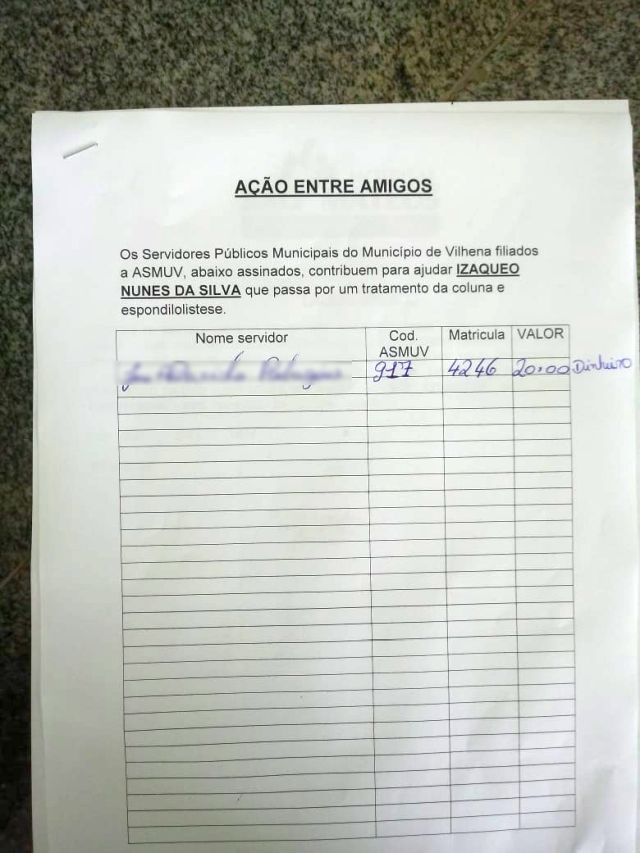 AÇÃO ENTRE AMIGOS
Os Servidores Públicos Municipais do Município de Vilhena filiados
a ASMUV, abaixo assinados, contribuem para ajudar IZAQUEO
NUNES DA SILVA que passa por um tratamento da coluna e
espondilolistese.
Nome servidor Cod. ASMUV Matricula VALOR
917 4246 20,00 Dinheiro